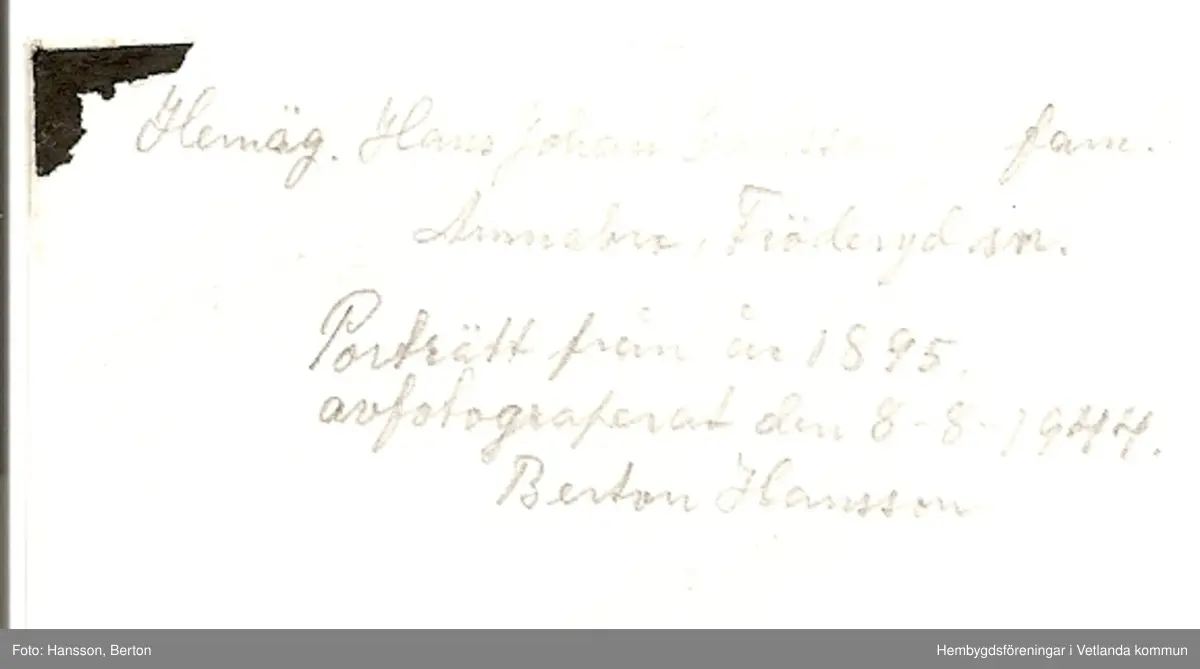 Hemäg. Hans Johan fam.
Fröderyd sn.
Porträtt från år 1895.
avfotograferat den 8-8-1944.
Berton Hansson
Foto: Hansson, Berton
Hembygdsföreningar i Vetlanda kommun